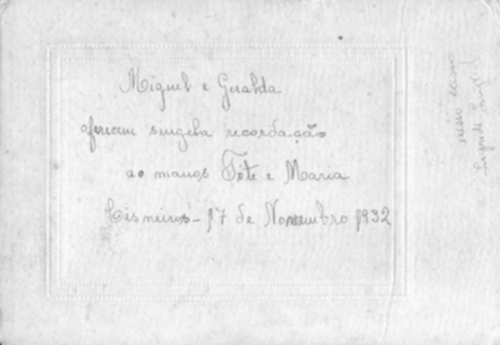 Miguel e Geralda
oferecem singela recordação
ao manos Tóte e Maria
Cisneiros - 17 de Novembro 1932